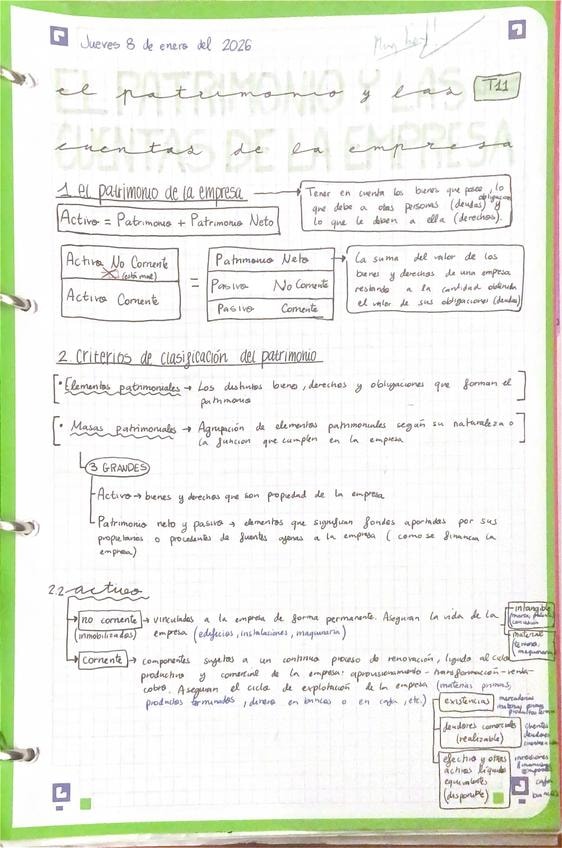 Jueves 8 de enero del 2026
Muy bien!!
EL PATRIMONIO Y LAS
el patrimonio y las
T11
CUENTAS DE LA EMPRESA
cuentas de la empresa
1. El patrimonio de la empresa
Activo = Patrimonio + Patrimonio Neto
Tener en cuenta los bienes que posee, lo
que debe a otras personas (deudas) y
obligación
lo que le deben a ella (derechos).
Activo No Corriente
(está mal)
Activo Corriente
=
Patrimonio Neto
Pasivo No Corriente
Pasivo Corriente
La suma del valor de los
bienes y derechos de una empresa
restando a la cantidad obtenida
el valor de sus obligaciones (deudas)
2. Criterios de clasificación del patrimonio
• Elementos patrimoniales → Los distintos bienes, derechos y obligaciones que forman el
patrimonio
• Masas patrimoniales → Agrupación de elementos patrimoniales según su naturaleza o
la funcion que cumplen en la empresa
3 GRANDES
Activo → bienes y derechos que son propiedad de la empresa
Patrimonio neto y pasivo → elementos que significan fondos aportados por sus
propietarios o procedentes de fuentes ajenas a la empresa (como se financia la
empresa)
2.2 activo
no corriente → vinculados a la empresa de forma permanente. Aseguran la vida de la
(inmobilizados) empresa (edificios, instalaciones, maquinaria)
intangible
material
terreno,
maquinaria
corriente → componentes sujetos a un continuo proceso de renovación, ligado al ciclo
productivo y comercial de la empresa: aprovisionamiento - transformación - venta -
cobro. Aseguran el ciclo de explotación de la empresa (materias primas,
productos terminados, dinero en bancos o en caja, etc.)
existencias
mercaderías
materias primas
deudores comerciales
(realizable)
clientes
deudores
efectivo y otros
activos líquidos
equivalentes
(disponible)
inversiones
financieras
caja
bancos